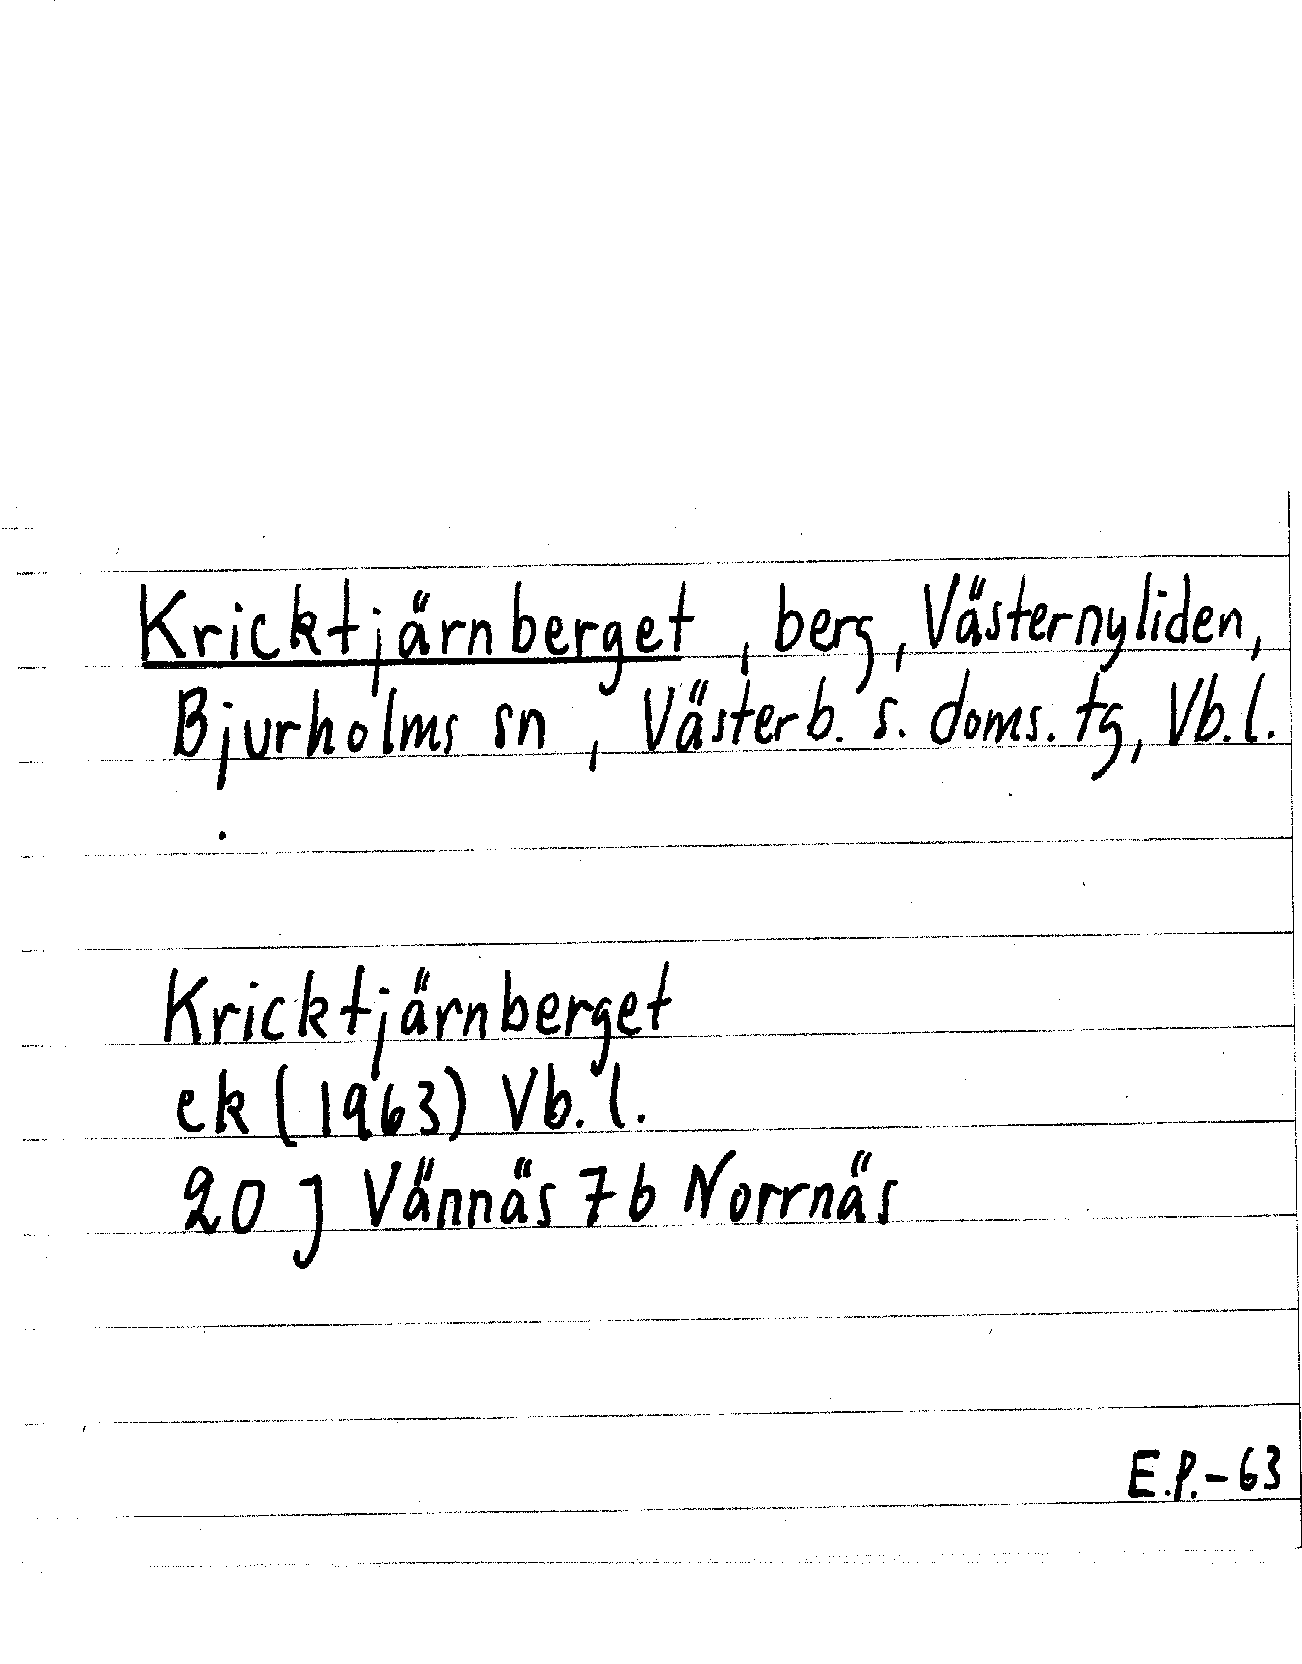 Kricktjärnberget, berg, Västernyliden,
Bjurholms sn, Västerb. s. doms. tg, Vb. l.
Kricktjärnberget
ek (1963) Vb. l.
20 J Vännäs 7b Norrnäs
E.P.-63